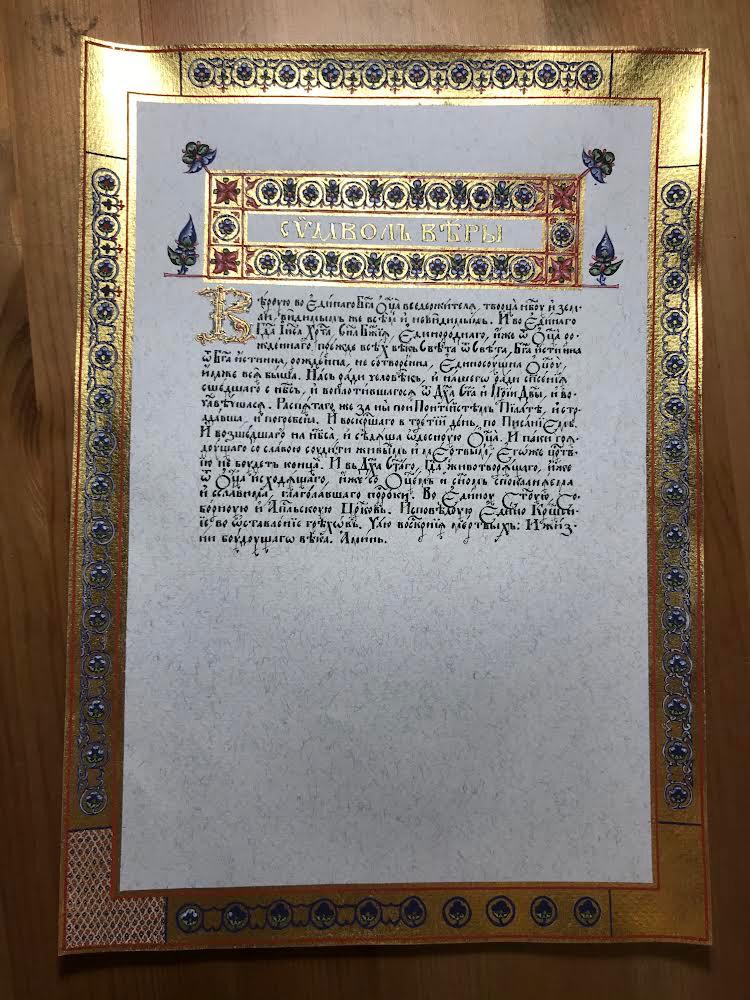 СѶМВОЛЪ ВѢРЫ
Вѣрую во Единаго Бга Оца вседержителя, творца нбоу и зем-
ли видимымъ же всѣм и невидимымъ. И во Единаго
Гда Іиса Хрта Сна Бжія Единороднаго, иже ѿ Оца ро-
жденнаго прежде всѣх вѣкъ Свѣта ѿ Свѣта, Бга истинна
ѿ Бга истинна, рожденна, не сотворенна, Единосущна Оцоу
имже вся быша. Насъ ради человѣкъ, и нашегѡ ради спсенія
сшедшаго с нбсъ, и воплотившагося ѿ Дха Ста и Мріи Двы, и во-
члвѣчшася. Распятаго же за ны при Понтійстѣмъ Пілатѣ, и стра-
давша, и погребена. И воскрсшаго в третій день, по Писаніемъ.
И возшедшаго на нбса, и сѣдяща ѡдесную Оца. И паки гря-
доущаго со славою соудити живымъ и мертвымъ, Егѡже црств-
ію не боудетъ конца. И въ Дха Стаго, Гда животворящаго, иже
ѿ Оца исходящаго, иже со Оцемъ и Сномъ споклоняема
и сславима, глаголавшаго пророки. Во Едину Стоую Со-
борноую и Апльскоую Црковь. Исповѣдоую Едино Крщен-
іе во ѡставленіе грѣховъ. Чаю воскрнія мертвыхъ: И жиз-
ни боудоущаго вѣка. Аминь.